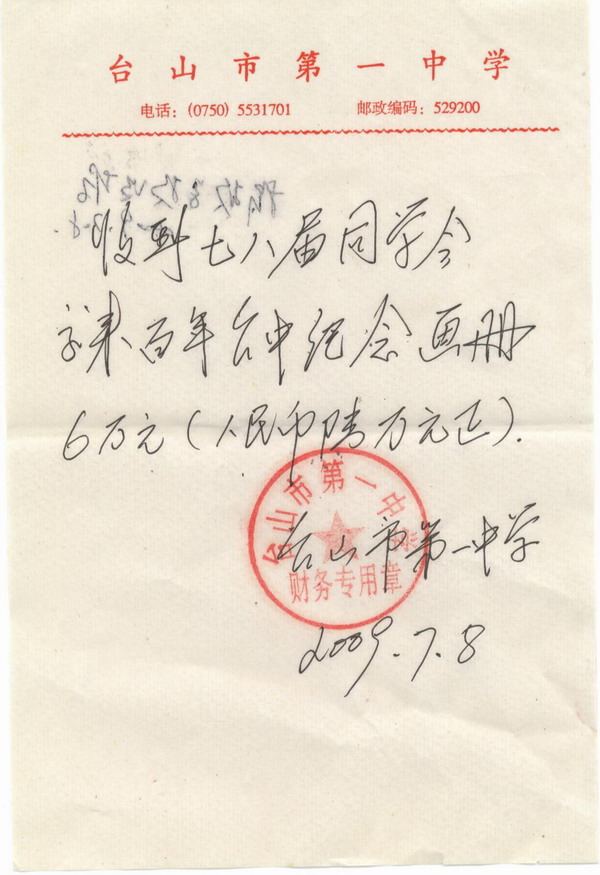 台山市第一中学
电话：(0750) 5531701 邮政编码：529200
收到七八届同学会
交来百年台中纪念画册
6万元（人民币陆万元正）.
台山市第一中学
财务专用章
台山市第一中学
2009.7.8